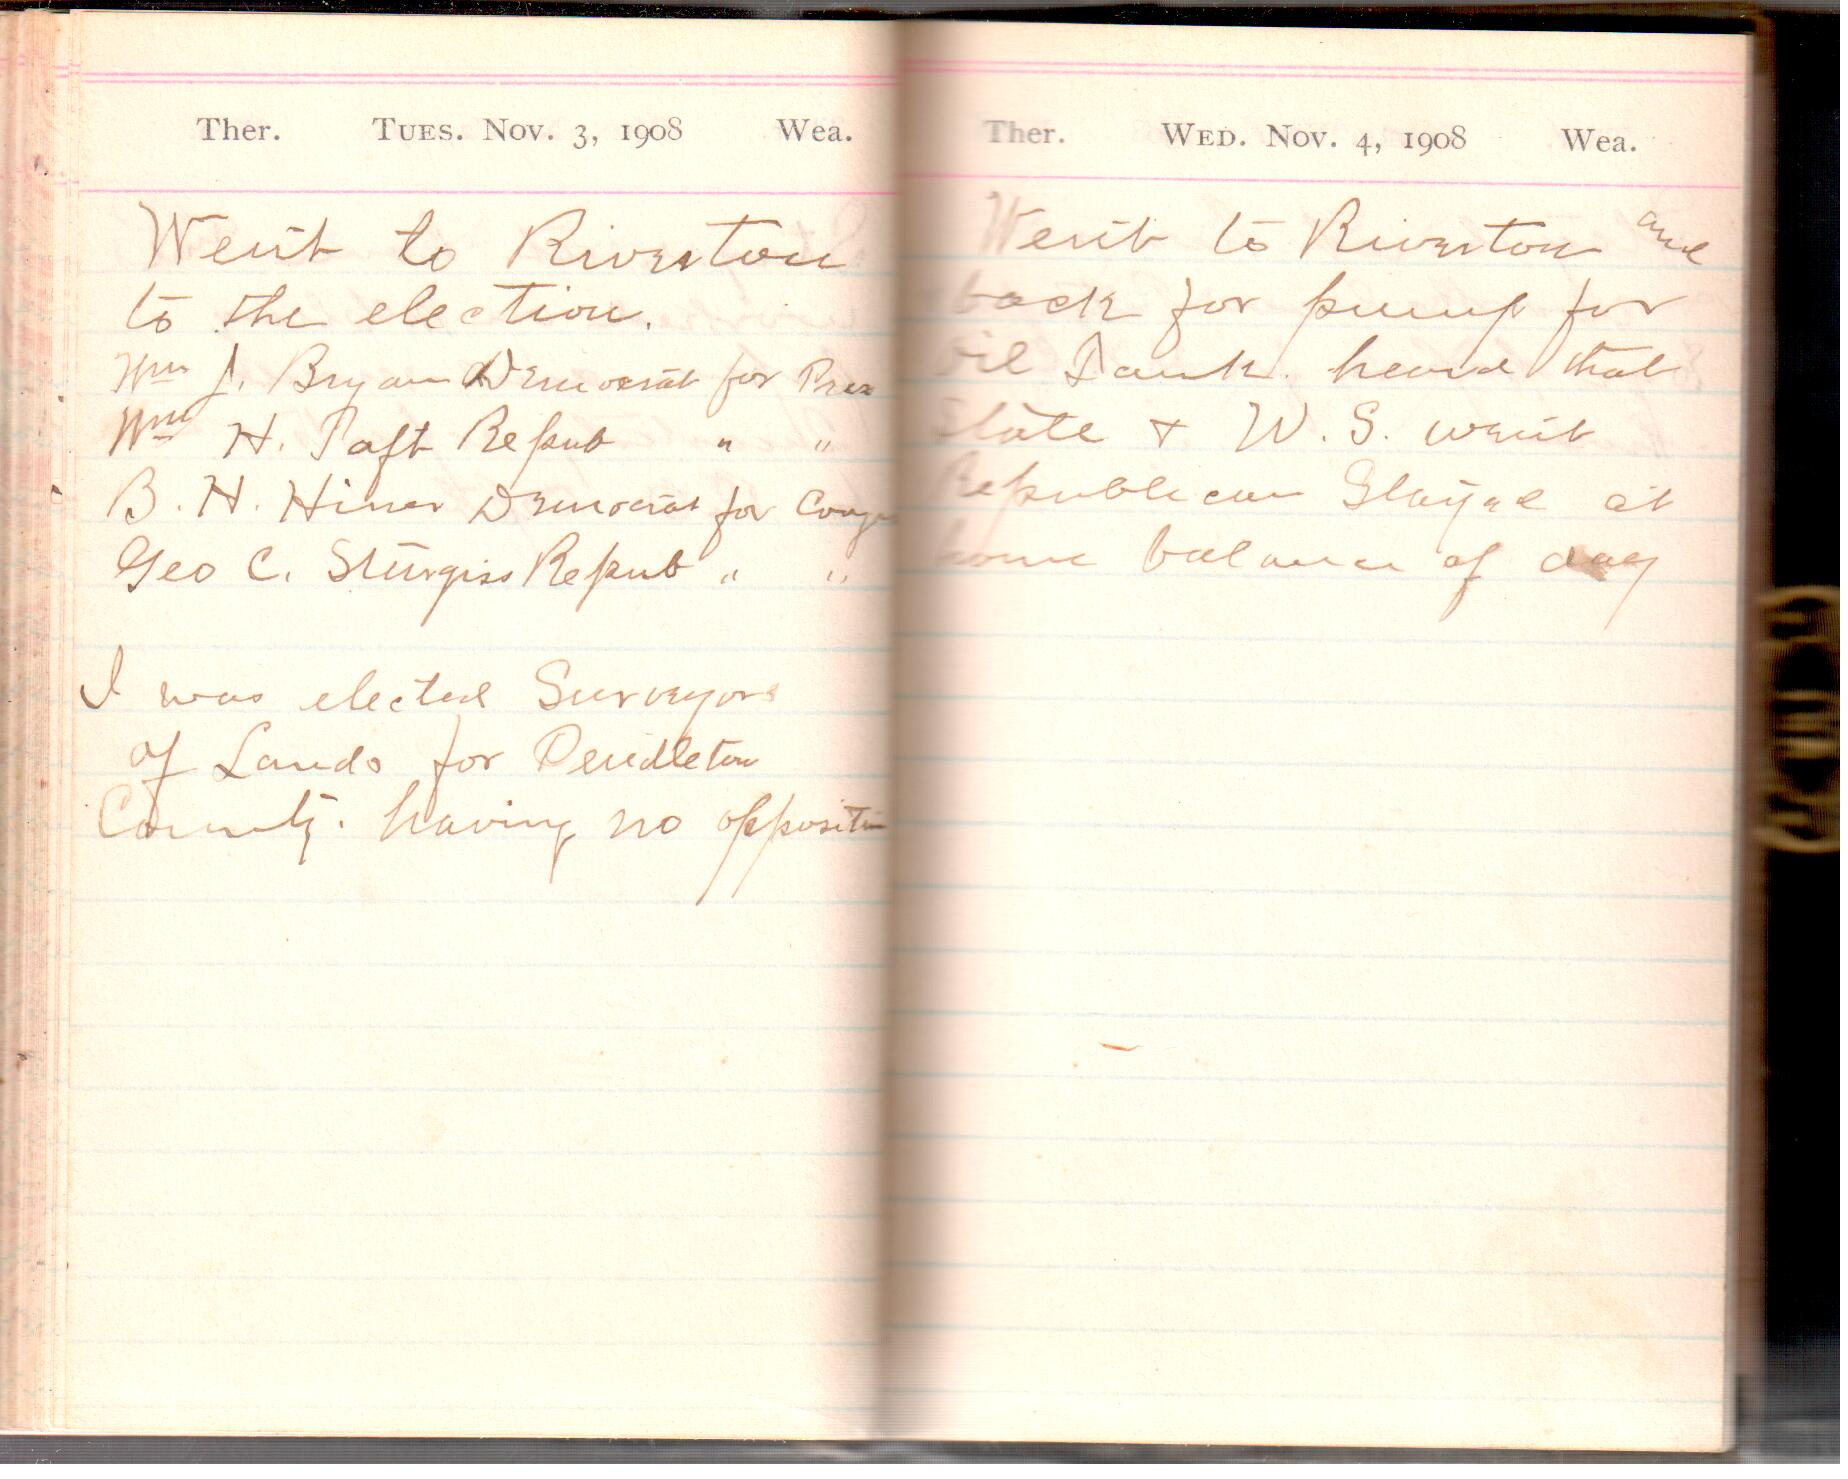 Ther. Tues. Nov. 3, 1908 Wea.
Went to Riverton
to the election.
Wm J. Bryan Democrat for Pres
Wm H. Taft Repub " "
B. H. Hiner Democrat for Congr
Geo C. Sturgiss Repub " "
I was elected Surveyor
of Lands for Pendleton
County. having no opposition
Ther. Wed. Nov. 4, 1908 Wea.
Went to Riverton and
back for pump for
oil Tank. heard that
State & W. S. went
Republican Stayed at
home balance of day